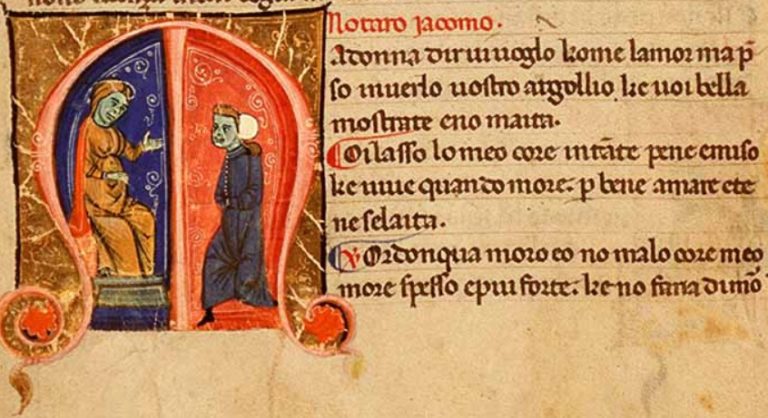 Notaro Jacomo.
Adonna dir uiuoglo kome lamor ma p̄
so inuerlo uostro argollio. ke uoi bella
mostrate eno maita.
Oilasso lo meo core intāte pene emiso
ke uiue quando more. p bene amare ete
neselaita.
Or donqua moro eo no malo core meo
more spesso epiu forte. ke no faria dimo